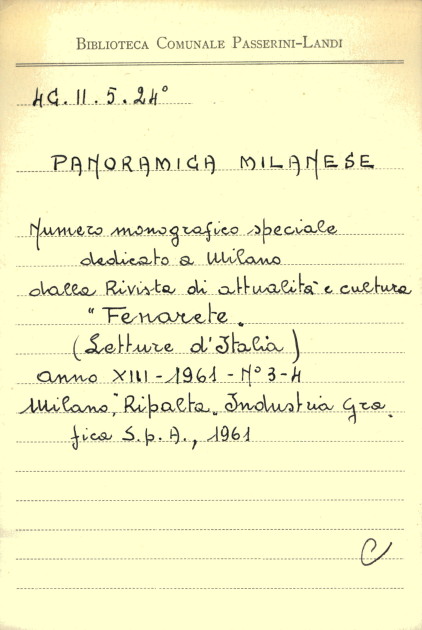 BIBLIOTECA COMUNALE PASSERINI-LANDI
4G.II.5.24°
PANORAMICA MILANESE
Numero monografico speciale
dedicato a Milano
dalla Rivista di attualità e cultura
"Fenarete.
(Letture d'Italia)
anno XIII-1961-N° 3-4
Milano, "Ripalta" Industria Gra.
fica S.p.A., 1961
C